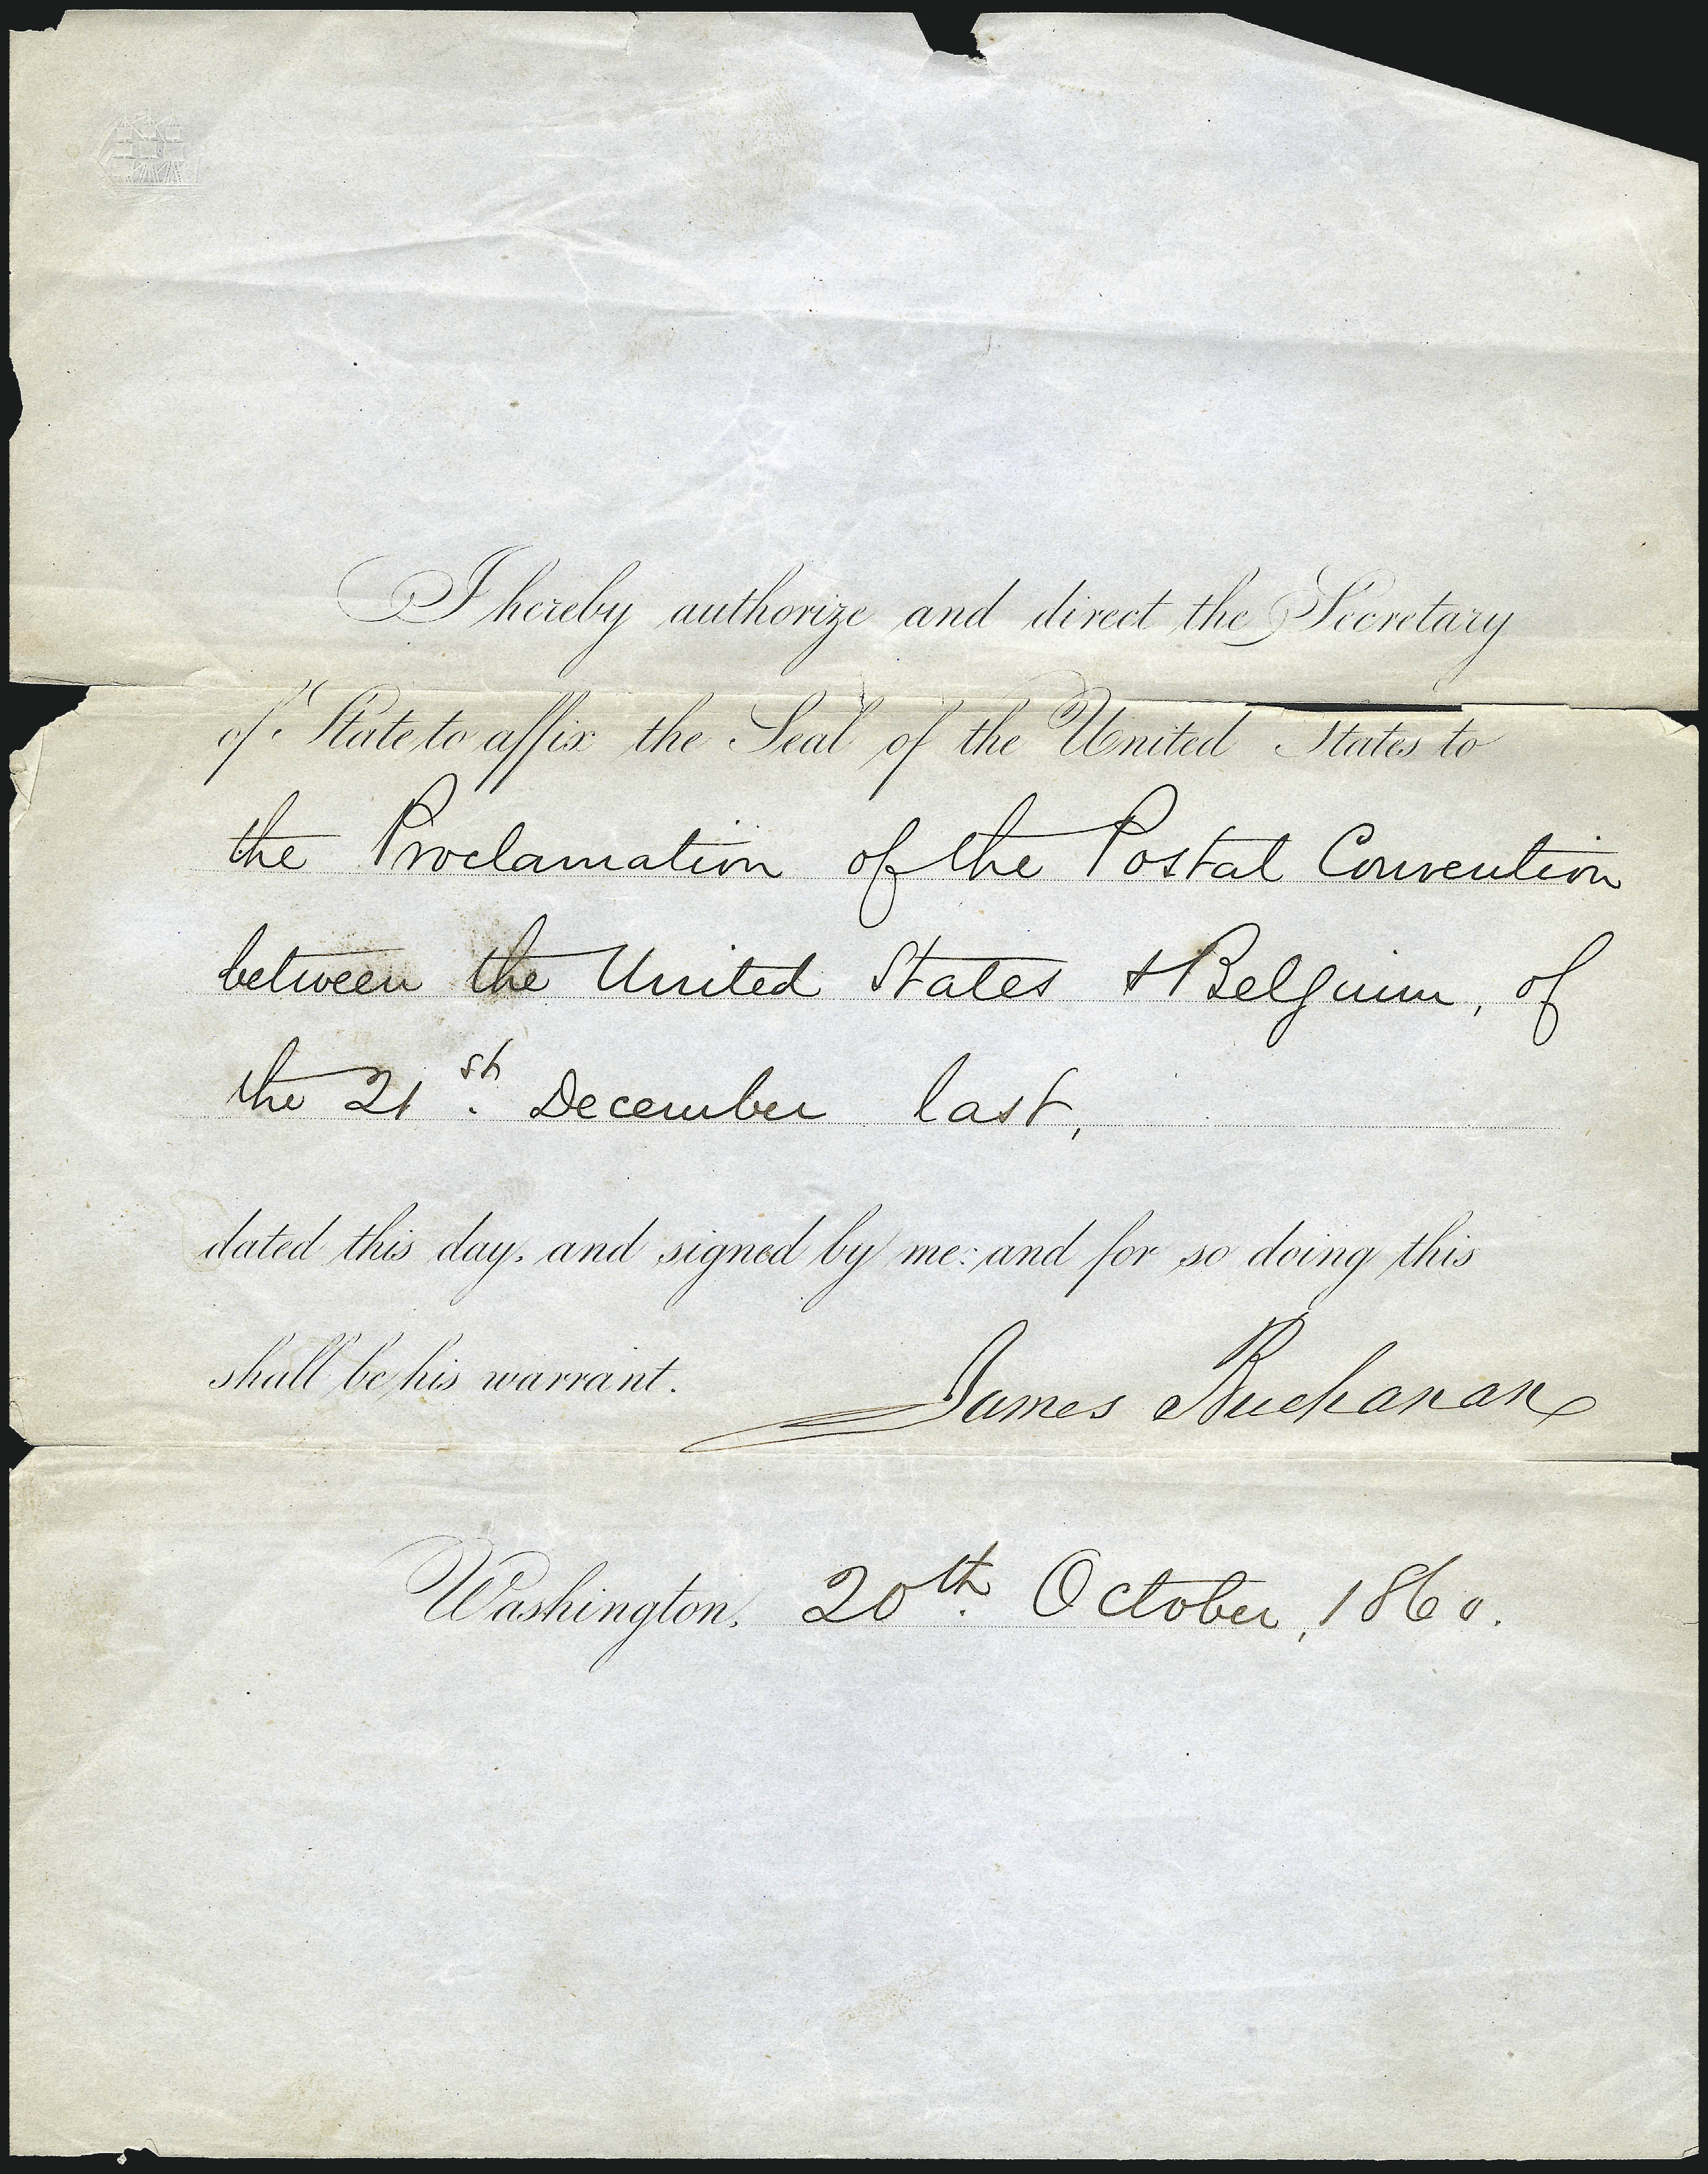 I hereby authorize and direct the Secretary
of State to affix the Seal of the United States to
the Proclamation of the Postal Convention
between the United States & Belgium, of
the 21st. December last,
dated this day, and signed by me: and for so doing this
shall be his warrant.
James Buchanan
Washington, 20th. October, 1860.